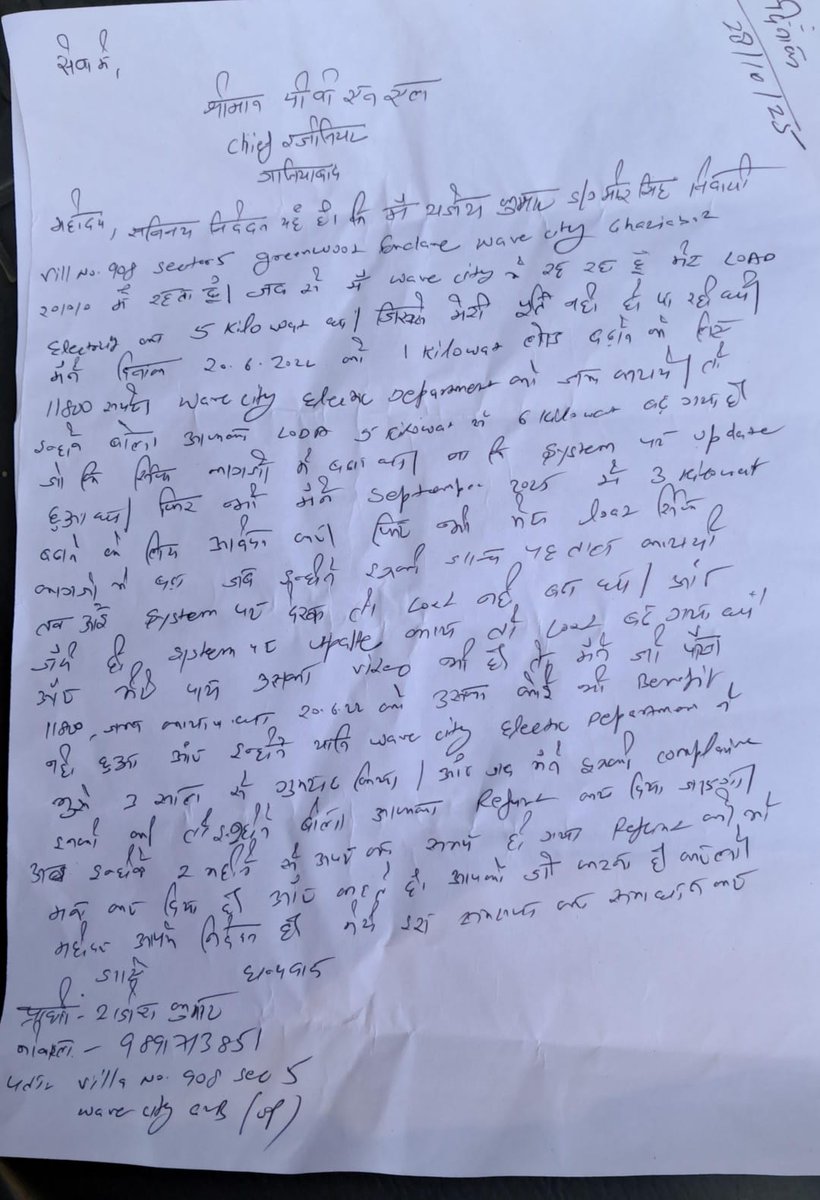 दिनांक
28/10/25
सेवा में,
श्रीमान पी वी एन एल
Chief इंजीनियर
गाजियाबाद
महोदय, सविनय निवेदन यह है। कि मैं राजेश कुमार S/O सिंह निवासी
Vill No. 908 sector5 greenwood Enclave wave city Ghaziabad
में रहता हूँ। जब से मैं wave city में रह रहा हूँ मेरा LOAD
Electricity का 5 Kilowat था। जिससे मेरी पूर्ति नही हो पा रही थी।
मैंने दिनांक 20.6.2022 को 1 kilowat लोड बढ़ाने के लिए
11800 रुपये wave city Electric Department को जमा कराये। तो
इन्होंने बोला आपका LODA 5 Kilowat से 6 kilowat बढ़ गया है
जो कि सिर्फ कागजों में बढ़ा था। ना कि System पर update
हुआ था। फिर भी मैंने September 2025 में 3 Kilowat
बढ़ाने के लिए आवेदन करा। फिर भी मेरा load सिर्फ
कागजो में बढ़ा जब इन्होंने इसकी जाँच पड़ताल करायी
तब और System पर देखा तो Load नही बढ़ा था। और
जैसे ही System पर update कराया तो Load बढ़ गया था।
और मेरे पास उसका video भी है तो मैंने जो पैसा
11800, जमा कराया था 20.6.22 को उसका कोई भी Benefit
नही हुआ और इन्होंने यानि wave city Electric Department ने
मुझे 3 साल से गुमराह किया। और जब मैंने इसकी complaine
इनको की तो इन्होंने बोला आपका Refund कर दिया जाऐगा।
अब इन्होंने 2 महीने से ऊपर का समय हो गया Refund को भी
मना कर दिया है और कहते है। आपको जो करना है करलो।
महोदय आपसे निवेदन है। मेरी इस समस्या का समाधान करा
जाऐ धन्यवाद
प्रार्थी - राजेश कुमार
मोबाइल - 9891713851
पता:- Villa No. 908 Sec 5
wave city GZB (UP)